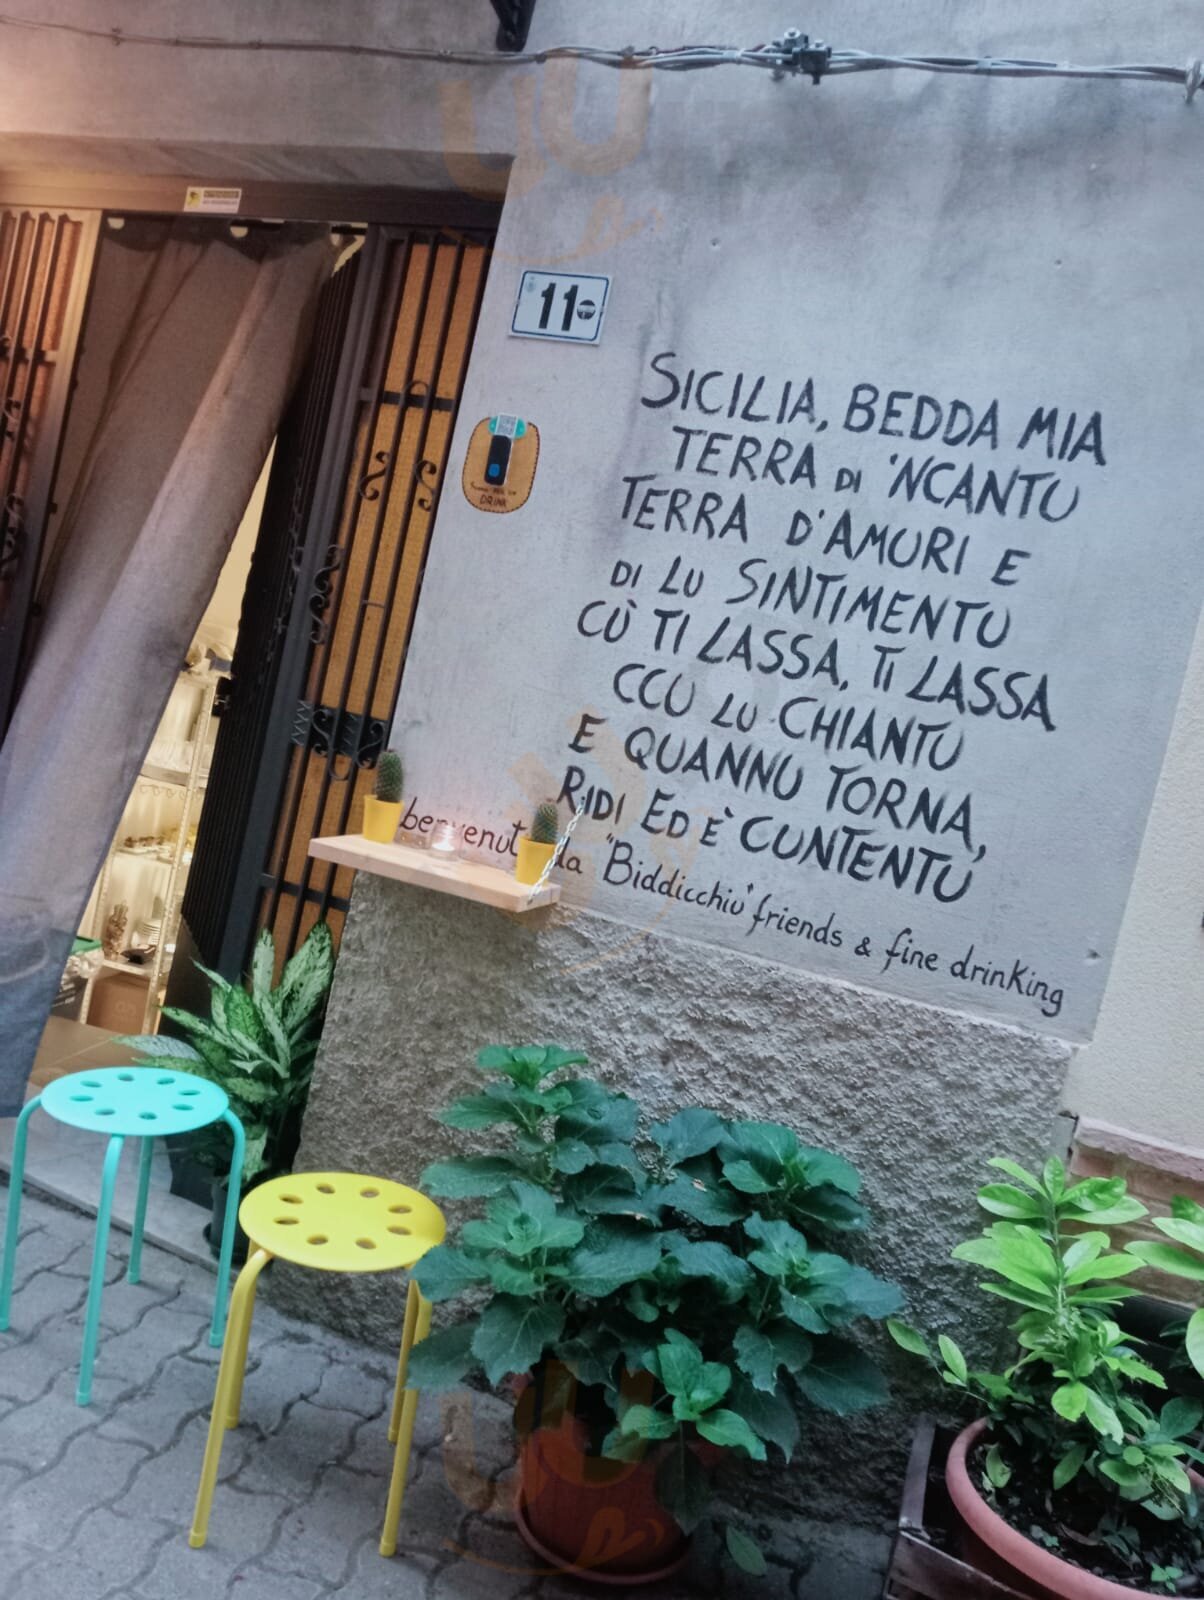 11
SICILIA, BEDDA MIA
TERRA DI 'NCANTU
TERRA D'AMURI E
DI LU SINTIMENTU
CÙ TI LASSA, TI LASSA
CCU LU CHIANTU
E QUANNU TORNA,
RIDI ED È CUNTENTU
benvenut da "Biddicchiu" friends & fine drinking
DRINK